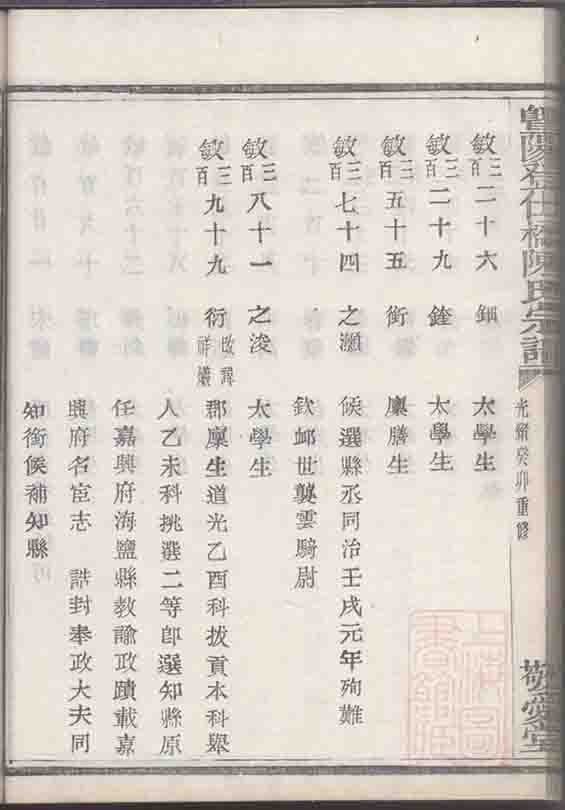 暨陽登仕橋陳氏宗譜
光緒癸卯重修
敬愛堂
敏三百二十六 鈿 太學生
敏三百二十九 鍷 太學生
敏三百五十五 銜 廩膳生
敏三百七十四 之灝 候選縣丞同治壬戌元年殉難
欽卹世襲雲騎尉
敏三百八十一 之浚 太學生
敏三百九十九 衍 郡廩生道光乙酉科拔貢本科舉
人乙未科挑選二等卽選知縣原
任嘉興府海鹽縣教諭政蹟載嘉
興府名宦志 誥封奉政大夫同
知銜候補知縣
上海圖書館藏